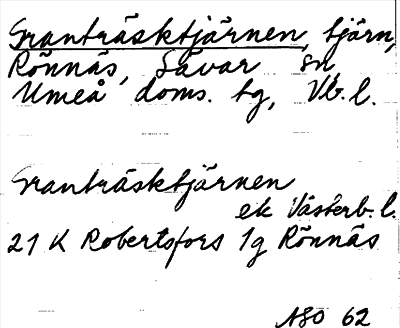 Granträsktjärnen, tjärn,
Rönnäs, Sävar sn,
Umeå doms. tg, Vb. l.
Granträsktjärnen
ek Västerb. l.
21 K Robertsfors 1g Rönnäs
ASO 62